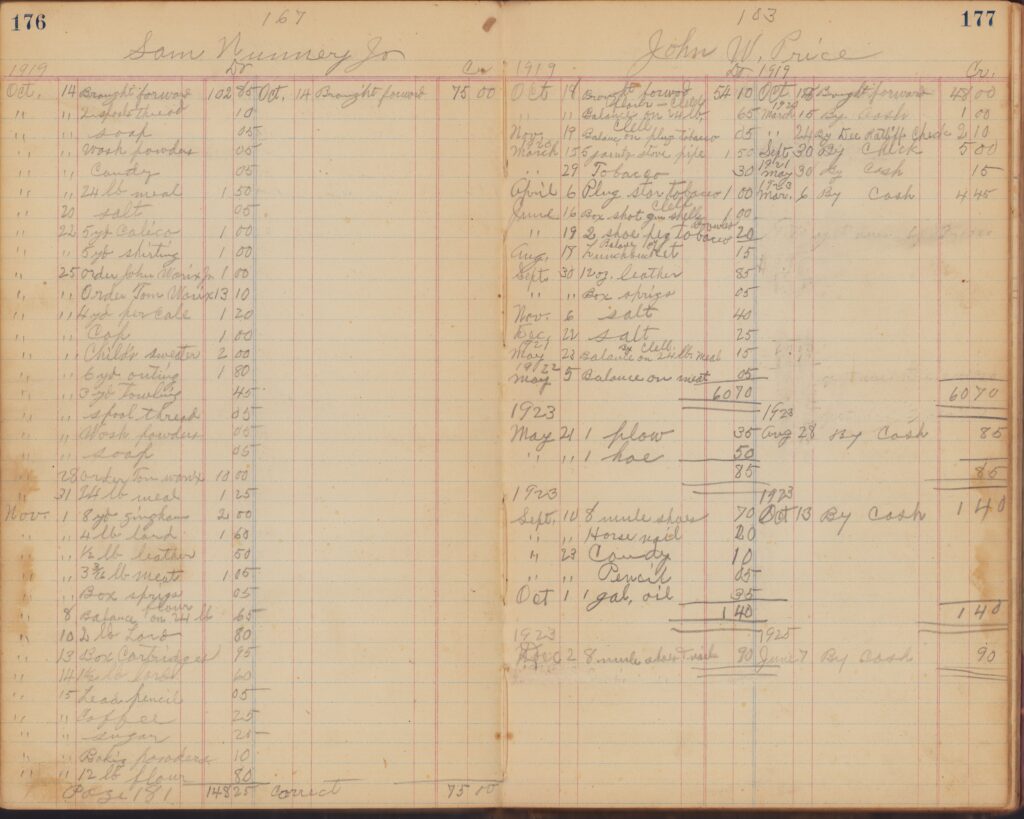 176
167
Sam Nunnery Jr
1919 Dr Cr.
Oct. 14 Brought forward 102 85 Oct. 14 Brought forward 75 00
" " 2 spools thread 10
" " soap 05
" " Wash powders 05
" " Candy 05
" " 24 lb meal 1 50
" 20 salt 05
" 22 5 yd Calico 1 00
" " 5 yd shirting 1 00
" 25 Order John Warix Jr. 1 00
" " Order Tom Warix 13 10
" " 4 yd percale 1 20
" " Cap 1 00
" " Child's sweater 2 00
" " 6 yd outing 1 80
" " 3 yd Towling 45
" " spool thread 05
" " Wash powders 05
" " soap 05
" 28 Order Tom Warix 10 00
" 31 24 lb meal 1 25
Nov. 1 8 yd gingham 2 00
" " 4 lb lard 1 60
" " ½ lb leather 50
" " 3 lb meat 1 05
" " Box sprigs 05
" 8 Balance on 24 lb flour 65
" 10 2 lb Lard 80
" 13 Box Cartridges 95
" 14 1½ lb lard 60
" 15 Lead pencil 05
" " Coffee 25
" " sugar 25
" " Baking powders 10
" " 12 lb flour 80
Page 181 148 25 Correct 75 00
177
183
John W. Price
1919 Dr 1919 Cr.
Oct 18 Brought forward 54 10 Oct 18 Brought forward 48 00
" " Balance on 24 lb. flour - Clell 65 1920 March 15 By Cash 1 00
Nov. 19 Balance on plug tobacco Clell 05 " 24 By Dee Ratliff Check 2 10
1920 March 15 5 joints stove pipe 1 50 Sept 30 By Check 5 00
" 29 Tobacco 30 1921 May 30 By Cash 15
April 6 Plug star tobacco 1 00 1923 Mar. 6 By Cash 4 45
June 16 Box shot gun shells Clell 1 00
" 19 2 shoe peg tobacco 20
Aug. 18 Balance on Lunch bucket 15
Sept. 30 12 oz. leather 85
" " Box sprigs 05
Nov. 6 salt 40
Dec. 22 salt 25
1921 May 23 Balance on 24 lb. meal By Clell 15
1922 May 5 Balance on meat 05
60 70 60 70
1923 1923
May 21 1 plow 35 Aug 28 By Cash 85
" " 1 hoe 50
85 85
1923 1923
Sept. 10 8 mule shoes 70 Oct 13 By Cash 1 40
" " Horse nail 20
" 23 Candy 10
" " Pencil 05
Oct 1 1 gal. oil 35
1 40 1 40
1923 1925
Dec 2 8 mule shoes & nails 90 June 7 By Cash 90